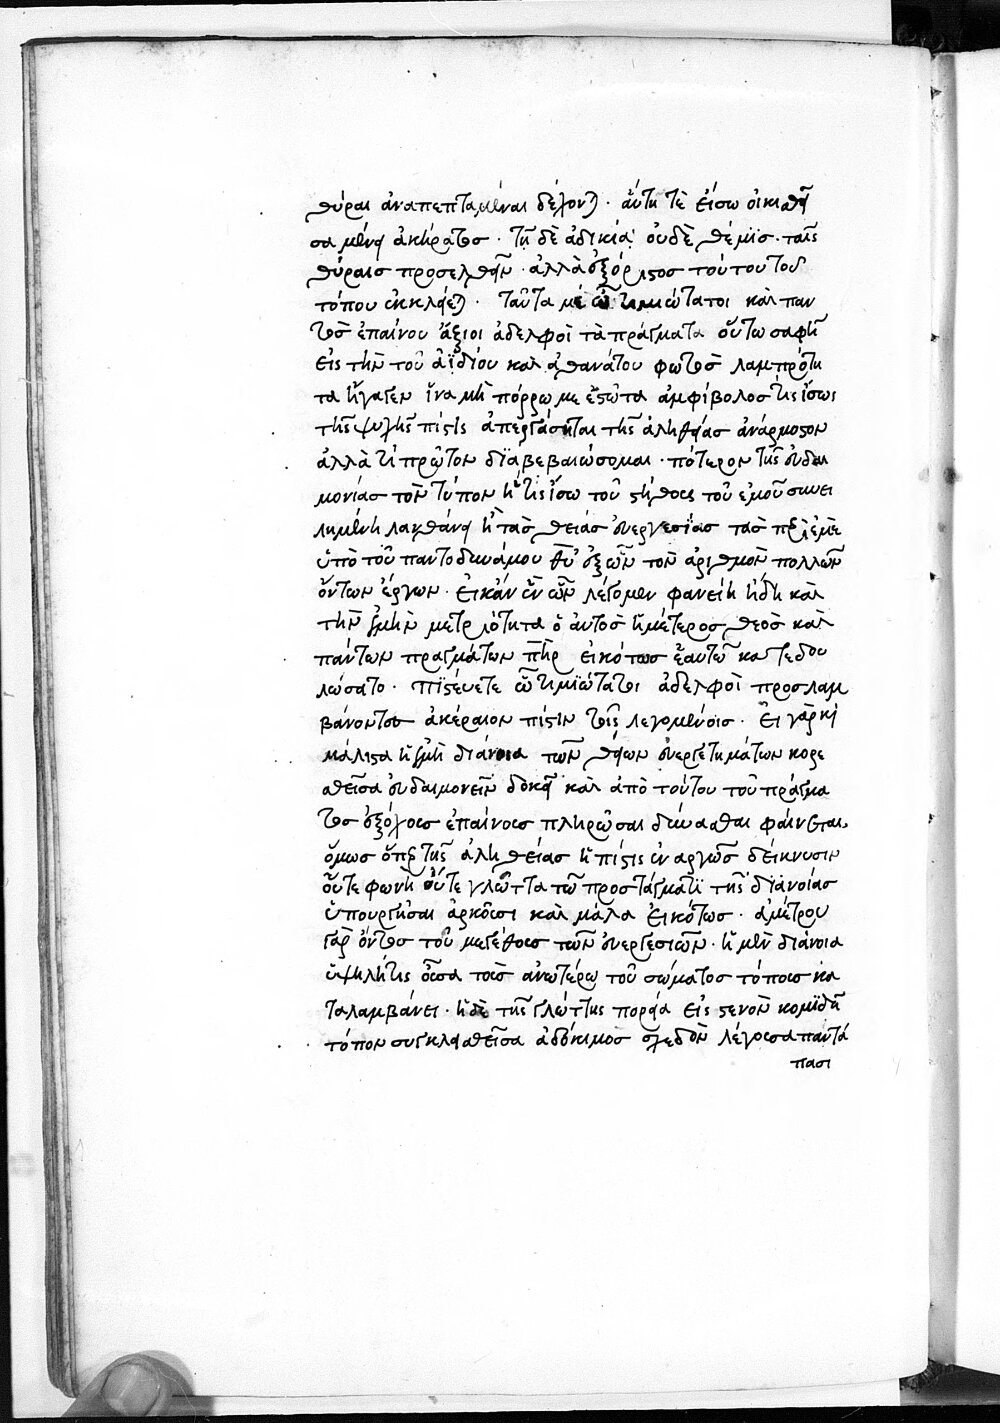 θύραι ἀναπεπταμέναι δέχονται. αὕτη τὲ εἴσω οἰκιαθεῖ
σα μένει ἀκήρατος. τῇ δὲ ἀδικία οὐδὲ θέμϊς ταῖς
θύραισ προσελθεῖν. ἀλλὰ ἐξόριστος τούτου τοῦ
τόπου ἐκκλείεται. ταῦτα μὲ ὦ τιμιώτατοι καὶ παν
τὸς ἐπαίνου ἄξιοι ἀδελφοὶ τὰ πράγματα οὕτω σαφῆ
εἰς τὴν τοῦ ἀϊδίου καὶ ἀθανάτου φωτὸς λαμπρότη
τα ἤγαγεν ἵνα μὴ πόρρω με ἑστῶτα ἀμφίβολος τις ἴσως
τῆς ψυχῆς πίστις ἀπεργάσηται τῆς ἀληθείας ἀνάρμοστον
ἀλλὰ τί πρῶτον διαβεβαιώσομαι. πότερον τῆς εὐδαι
μονίας τὸν τύπον ἥτις ἴσω τοῦ στήθους τοῦ ἐμοῦ συνει
λημένη λανθάνει ἢ τὰς θείας εὐεργεσίας τὰς περὶ ἐμὲ
ὑπὸ τοῦ παντοδυνάμου θῦ ἐξ ὧν τὸν ἀριθμὸν πολλῶν
ὄντων ἔργων. εἰκἀν ἓν ὧν λέγομεν φανείη ἤδη καὶ
τὴν ἐμὴν μετριότητα ὁ αὐτὸς ἡμέτερος θεὸς καὶ
πάντων πραγμάτων πῆρ εἰκότως ἑαυτῶ κατεδου
λώσατο. πϊστεύετε ὦ τιμϊώτατοι ἀδελφοὶ προσλαμ
βάνοντες ἀκέραιον πίστιν τοῖς λεγομένοις. Εἰ γὰρ καὶ
μάλιστα ἡ ἐμὴ διάνοια τῶν θείων εὐεργετημάτων κορε
σθεῖσα εὐδαιμονεῖν δοκεῖ καὶ ἀπὸ τούτου τοῦ πράγμα
τος ἐξόχους ἐπαίνους πληρῶσαι δύνασθαι φαίνεται,
ὅμως ὅπερ τῆς ἀληθείας ἡ πίστις ἐναργῶς δείκνυσιν
οὔτε φωνὴ οὔτε γλῶττα τῶ προστάγματϊ τῆς διανοίας
ὑπουργῆσαι ἀρκοῦσι καὶ μάλα εἰκότως. ἀμέτρου
γὰρ ὄντος τοῦ μεγέθους τῶν εὐεργεσιῶν. ἡ μὲν διάνοια
ὑψηλή τις οὖσα τοὺς ἀνωτέρω τοῦ σώματος τόπους κα
ταλαμβάνει. ἡ δὲ τῆς γλώττης πορεία εἰς στενὸν κομϊδῆ
τόπον συγκλεισθεῖσα ἀδόκιμος σχεδὸν λέγουσα παντά
πασι